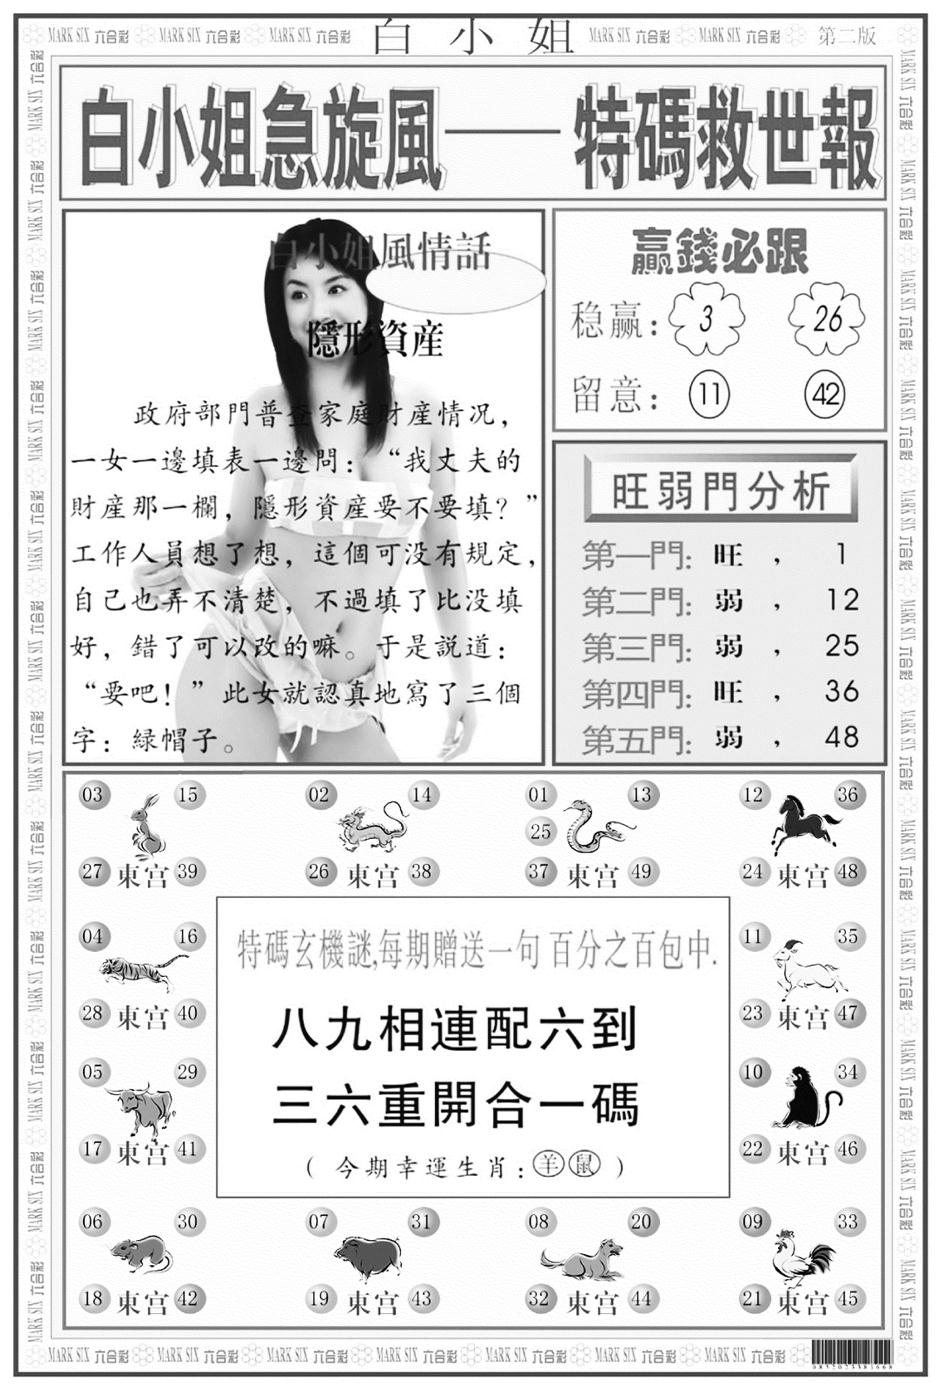 MARK SIX 六合彩 MARK SIX 六合彩 MARK SIX 六合彩 白小姐 MARK SIX 六合彩 MARK SIX 六合彩 第二版
白小姐急旋風——特碼救世報
白小姐風情話
隱形資産
政府部門普查家庭財産情况，
一女一邊填表一邊問：“我丈夫的
財産那一欄，隱形資産要不要填？”
工作人員想了想，這個可没有規定，
自己也弄不清楚，不過填了比没填
好，錯了可以改的嘛。于是説道：
“要吧！”此女就認真地寫了三個
字：緑帽子。
贏錢必跟
稳赢： 3 26
留意： 11 42
旺弱門分析
第一門: 旺 ， 1
第二門: 弱 ， 12
第三門: 弱 ， 25
第四門: 旺 ， 36
第五門: 弱 ， 48
03 15 02 14 01 13 12 36
25
27 東宫 39 26 東宫 38 37 東宫 49 24 東宫 48
04 16
28 東宫 40
05 29
17 東宫 41
特碼玄機謎,每期贈送一句 百分之百包中.
八九相連配六到
三六重開合一碼
（今期幸運生肖：羊 鼠）
11 35
23 東宫 47
10 34
22 東宫 46
06 30 07 31 08 20 09 33
18 東宫 42 19 東宫 43 32 東宫 44 21 東宫 45
MARK SIX 六合彩 MARK SIX 六合彩 MARK SIX 六合彩 MARK SIX 六合彩 MARK SIX 六合彩 MARK SIX 六合彩 MARK SIX 六合彩